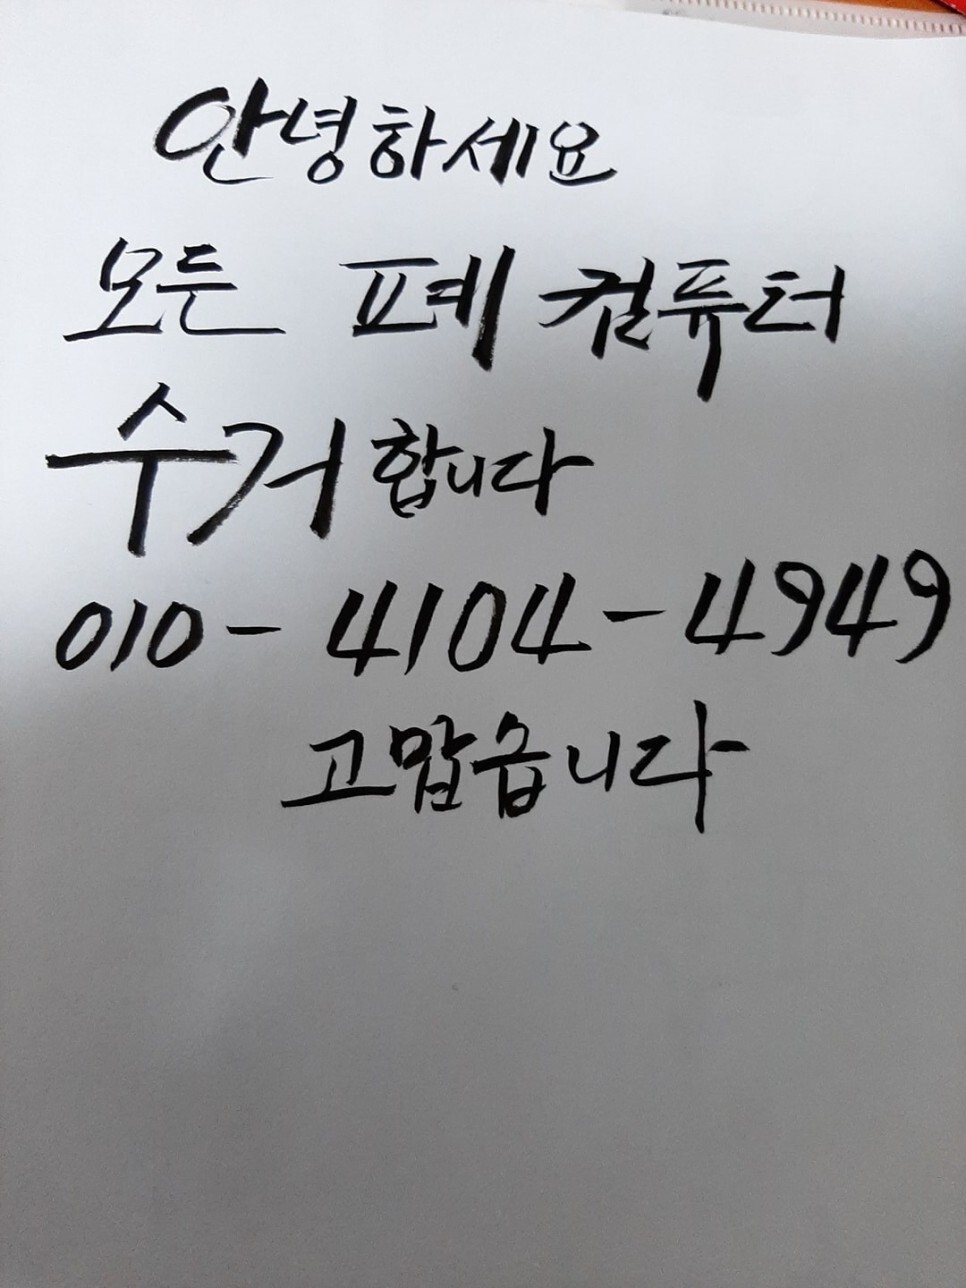 안녕하세요
모든 폐컴퓨터
수거합니다
010-4104-4949
고맙습니다